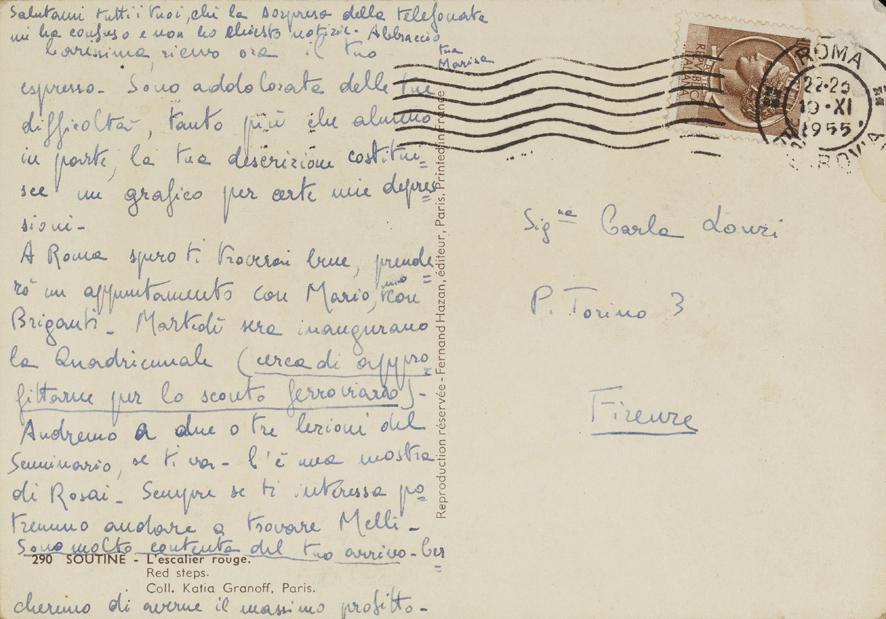 Salutami tutti i tuoi, chi la sorpresa della telefonata
mi ha confuso e non ho chiesto notizie. Abbraccio
tua
Marisa
Carissima, ricevo ora il tuo
espresso. Sono addolorata delle tue
difficoltà, tanto più che almeno
in parte, la tua descrizione costitui=
sce un grafico per certe mie depres
sioni.
A Roma spero ti troverai bene, prende=
rò un appuntamento con Mario, uno con
Briganti. Martedì sera inaugurano
la Quadriennale (cerca di appro=
fittarne per lo sconto ferroviario).
Andremo a due o tre lezioni del
Seminario, se ti va. C'è una mostra
di Rosai. Sempre se ti interessa po=
tremmo andare a trovare Melli.
Sono molto contenta del tuo arrivo. Cer=
290 SOUTINE - L'escalier rouge.
Red steps.
Coll. Katia Granoff, Paris.
cheremo di averne il massimo profitto.
Reproduction réservée - Fernand Hazan, éditeur, Paris. Printed in France
REPUBBLICA
ITALIANA
ROMA
10·XI
1955
FERROVIA
Sig.na Carla Lonzi
P. Torino 3
Firenze